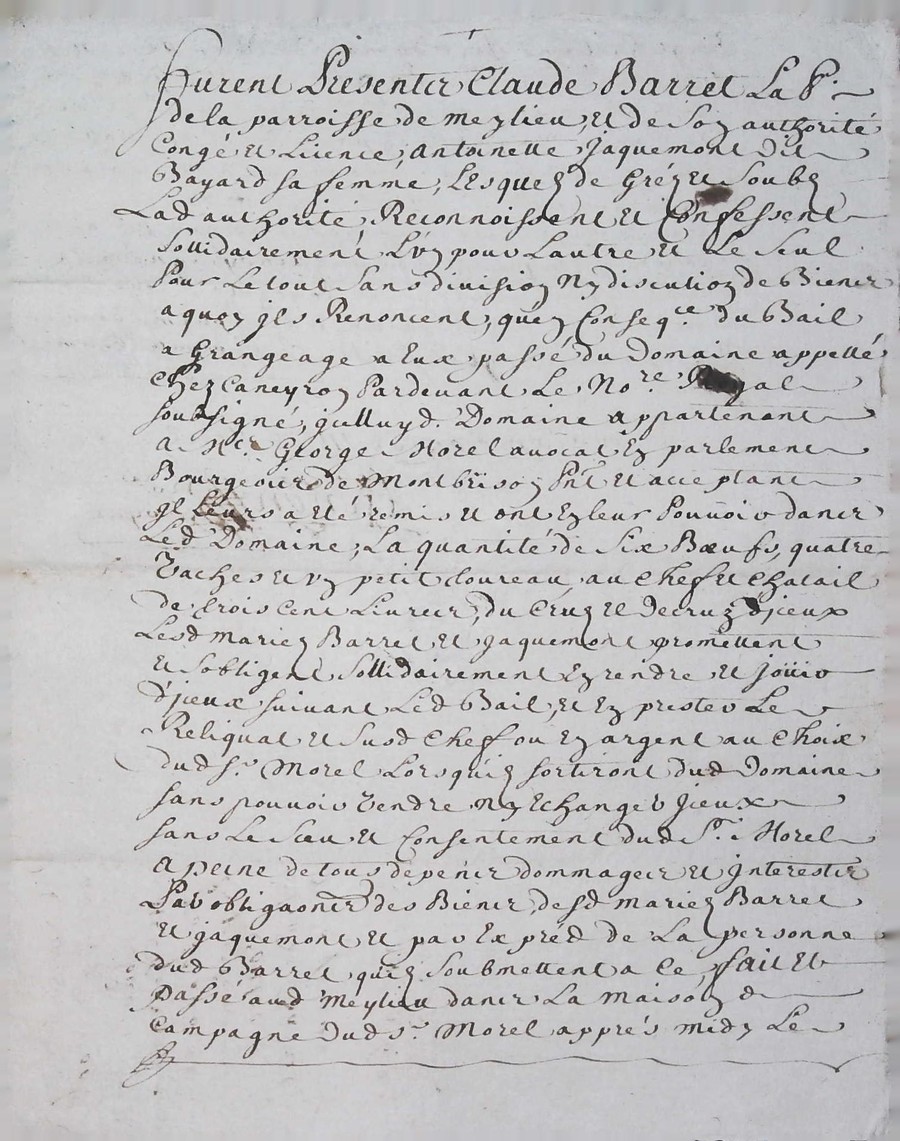 furent Presentz Claude Barret La Br.
de la parroisse de meylieu, et de Soy authorité
Congé et Licence, Antoinette Jaquemont dit
Bayard sa femme, Lesquez de Gréz et Soubz
Lad authorité, Reconnoissent et Confessent
Sollidairement, L'vy pour Lautre et Le Seul
Pour Letout Sans division Ny discution de Biens
a quoy jls Renoncent, quey Conseq.ce du Bail
a Grangeage a Eux passé du Domaine appellé
Chez Caneyroy Pardevant Le No.re Royal
soubsigné, jcelluy d. Domaine appartenant
a Me. George Morel avocat Ey parlement
Bourgeois de Montbrisoy Pnt et acceptant
jl Leurs a été remis et ont Ey leur Pouvoir dans
Led Domaine, La quantité de Six Bœufs, quatre
Vaches et vy petit toureau au Chef et Chatail
de trois Cent Livres, du Cruz et Decruz d'jceux
Lesd mariez Barret et Jaquemont promettent
et S'obligent Sollidairement Ey rendre et joüir
d'jceux suivant Led Bail, et Ey prester Le
Reliquat et Susd Chef ou Ey argent au Choix
dud s.r Morel Lorsquilz sortiront dud Domaine
sans pouvoir Vendre ny Echanger jceux
sans Le Sceu et Consentement dud S.r Morel
a peine de tous depens dommages et Interestz
Par obligaons des Biens, desd mariez Barret
et jaquemont, et par Exprés de La personne
dud Barret, quilz Soubmettent a Ce, fait Et
Passé aud Meylieu dans La maisoy de
Campagne Dud s.r Morel apprés midy Le